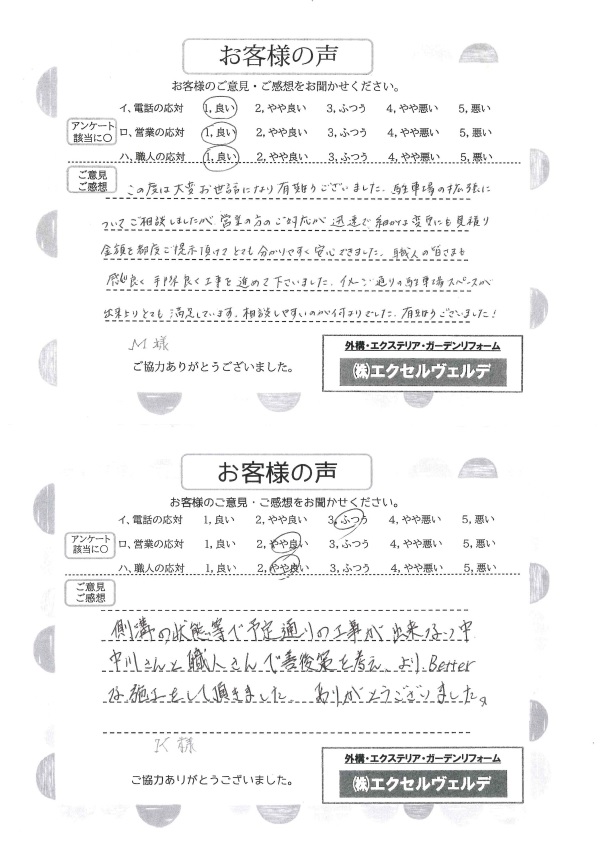 お客様の声
お客様のご意見・ご感想をお聞かせください。
アンケート
該当に○
イ、電話の応対 1, 良い 2, やや良い 3, ふつう 4, やや悪い 5, 悪い
ロ、営業の応対 1, 良い 2, やや良い 3, ふつう 4, やや悪い 5, 悪い
ハ、職人の応対 1, 良い 2, やや良い 3, ふつう 4, やや悪い 5, 悪い
ご意見
ご感想
この度は大変お世話になり有難うございました。駐車場の拡張に
ついてご相談しましたが 営業の方のご対応が 迅速で 細かな変更にも見積り
金額を都度ご提示頂けて とても 分かりやすく 安心できました。職人の皆さまも
感じ良く 手際良く工事を進めて下さいました。イメージ通りの駐車場スペースが
出来上りとても 満足しています。相談しやすいのが何よりでした。有難うございました!
M 様
ご協力ありがとうございました。
外構・エクステリア・ガーデンリフォーム
㈱エクセルヴェルデ
お客様の声
お客様のご意見・ご感想をお聞かせください。
アンケート
該当に○
イ、電話の応対 1, 良い 2, やや良い 3, ふつう 4, やや悪い 5, 悪い
ロ、営業の応対 1, 良い 2, やや良い 3, ふつう 4, やや悪い 5, 悪い
ハ、職人の応対 1, 良い 2, やや良い 3, ふつう 4, やや悪い 5, 悪い
ご意見
ご感想
側溝の状態等で予定通りの工事が 出来ない中
中川さんと職人さんで善後策を考え、より、Better
な施工をして頂きました。ありがとうございました。
K 様
ご協力ありがとうございました。
外構・エクステリア・ガーデンリフォーム
㈱エクセルヴェルデ